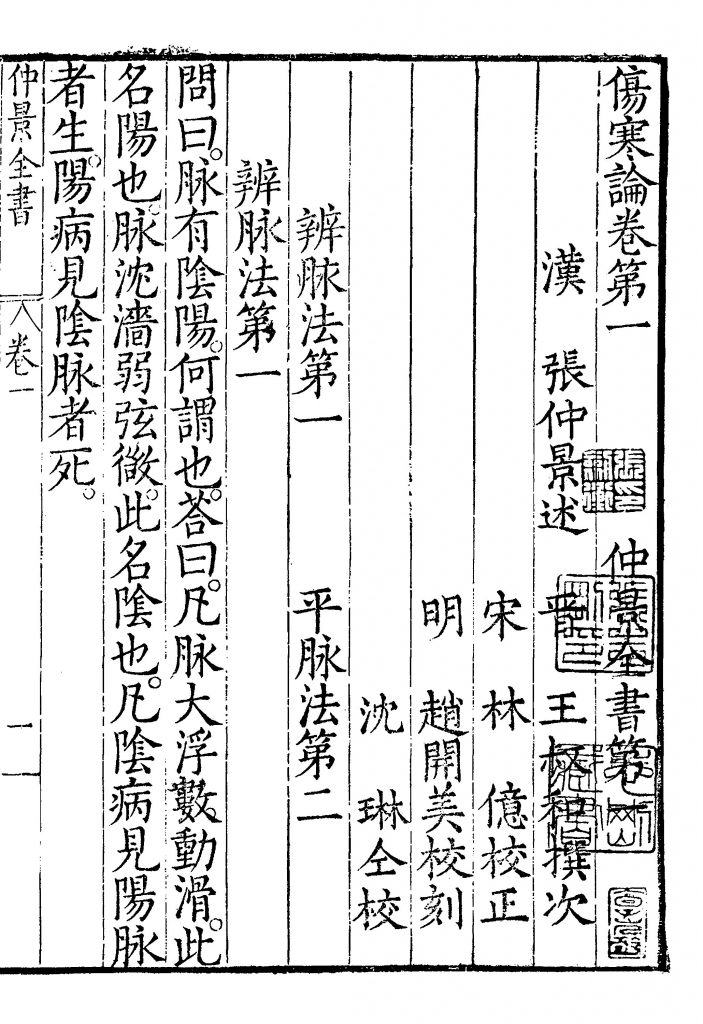 傷寒論卷第一 仲景全書第一
漢 張仲景述 晉 王叔和撰次
宋 林 億校正
明 趙開美校刻
沈 琳仝校
辨脉法第一 平脉法第二
辨脉法第一
問曰。脉有陰陽。何謂也。荅曰。凡脉大浮數動滑。此
名陽也。脉沈濇弱弦微。此名陰也。凡陰病見陽脉
者生。陽病見陰脉者死。
仲景全書 卷一 一